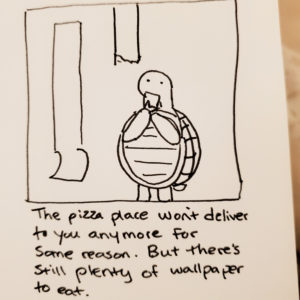 The pizza place won't deliver
to you anymore for
some reason. But there's
still plenty of wallpaper
to eat.